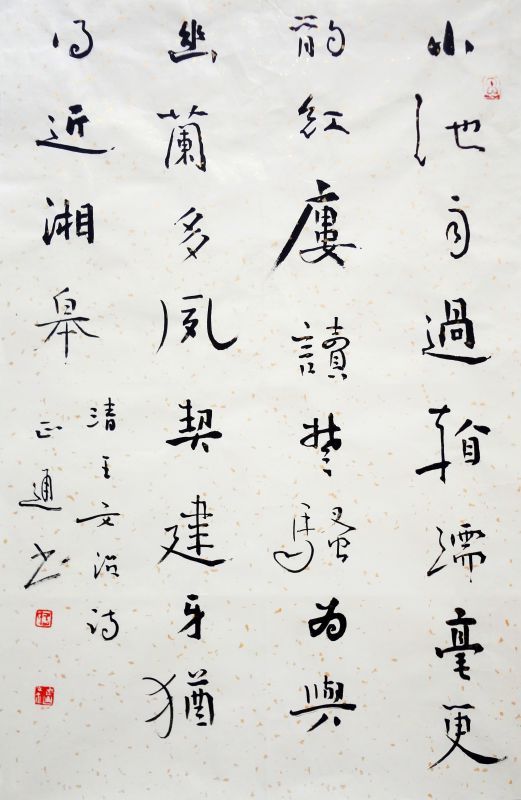 小池自過輒濡毫更
紅廔讀楚騷為與
幽蘭多夙契建牙猶
得近湘皋
清王文治詩
正通書